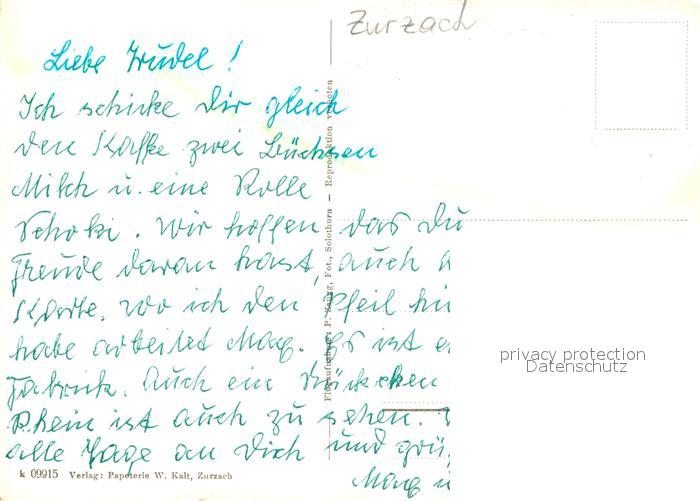 Zurzach
Liebe Trudel!
Ich schicke Dir gleich
den Kaffe zwei Büchsen
Milch u. eine Rolle
Schoki. Wir hoffen, das Du
Freude daran hast, auch
Karte. Wo ich den Pfeil
habe arbeitet Mag. Es ist
Fabrik. Auch ein Stückchen
Rhein ist auch zu sehen.
alle Tage an Dich und
Mag
k 09915 Verlag: Papeterie W. Kalt, Zurzach
Flugaufnahme: P. Zaugg, Fot., Solothurn – Reproduktion verboten
privacy protection
Datenschutz